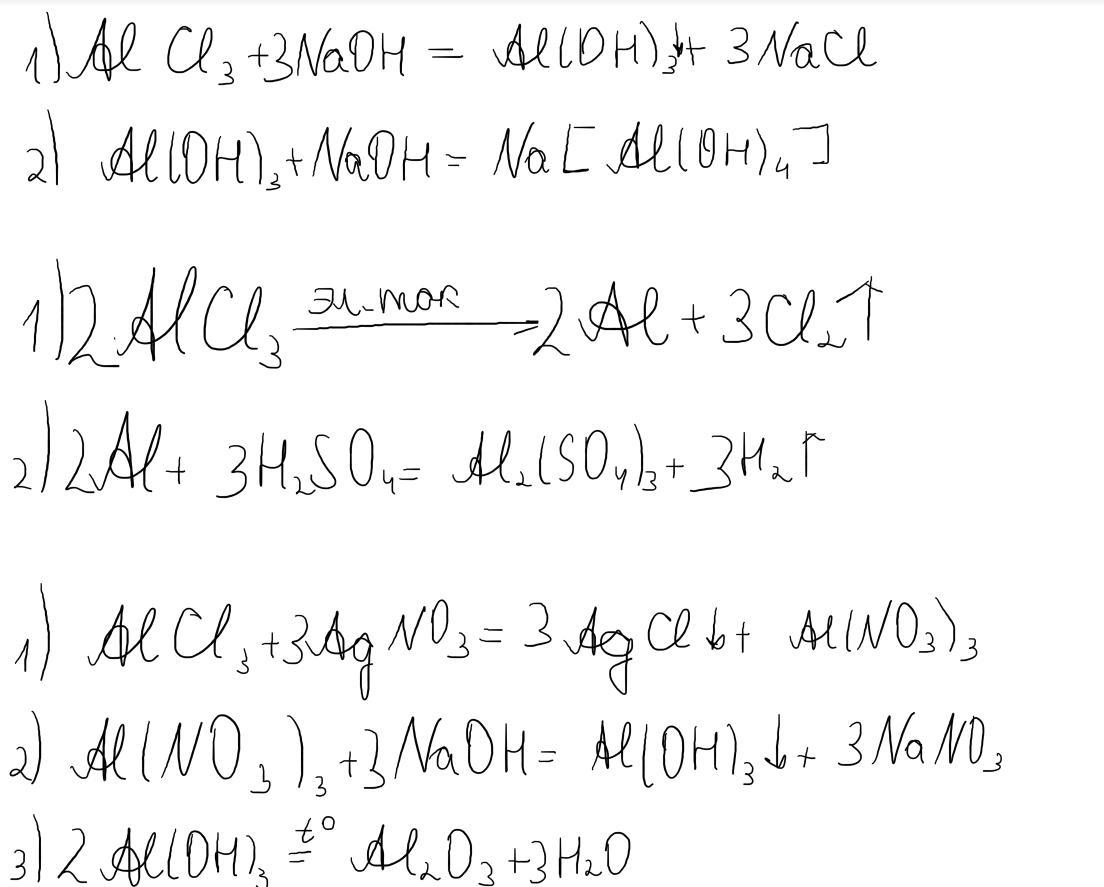 1) AlCl₃ + 3NaOH = Al(OH)₃↓ + 3NaCl
2) Al(OH)₃ + NaOH = Na[Al(OH)₄]
1) 2AlCl₃ эл-ток → 2Al + 3Cl₂↑
2) 2Al + 3H₂SO₄ = Al₂(SO₄)₃ + 3H₂↑
1) AlCl₃ + 3AgNO₃ = 3AgCl↓ + Al(NO₃)₃
2) Al(NO₃)₃ + 3NaOH = Al(OH)₃↓ + 3NaNO₃
3) 2Al(OH)₃ =t° Al₂O₃ + 3H₂O